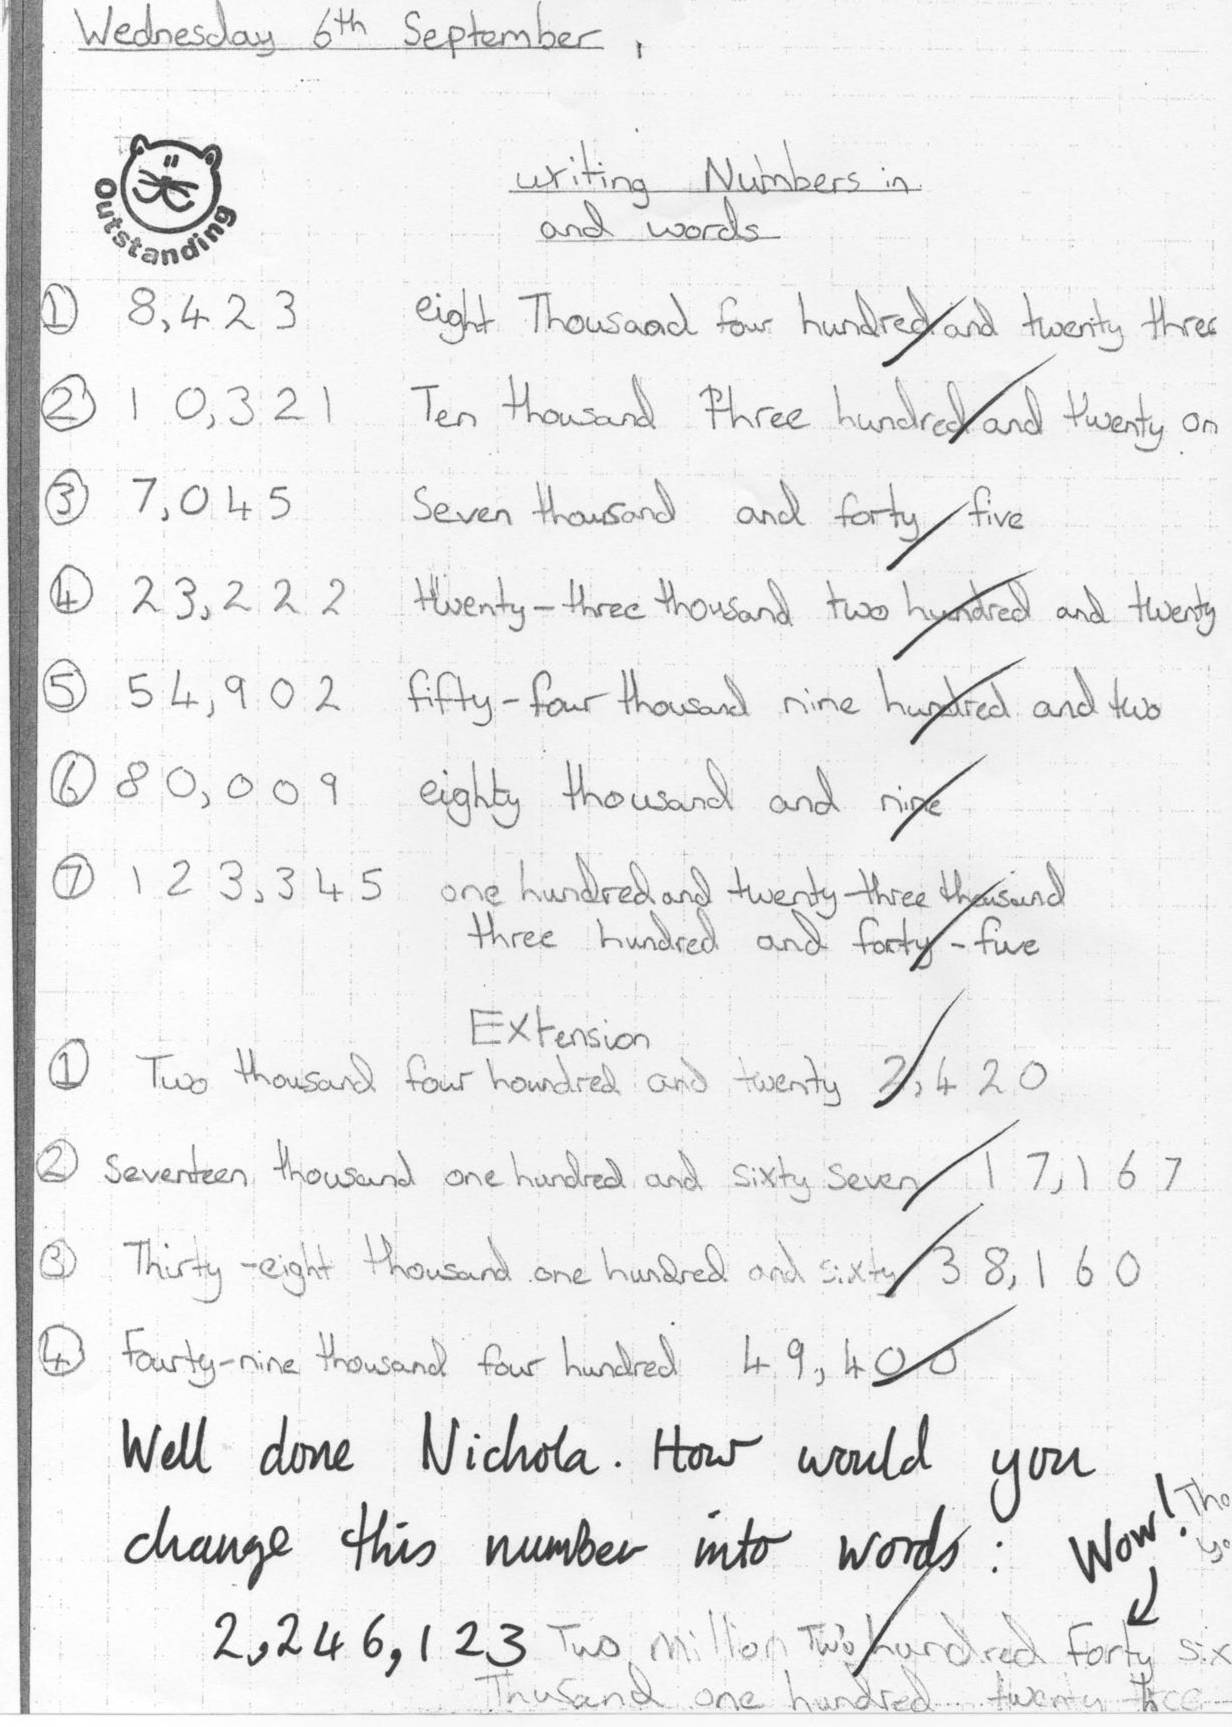 Wednesday 6th September
Outstanding
writing Numbers in
and words
① 8,423 eight Thousand four hundred and twenty three
② 10,321 Ten thousand Three hundred and twenty on
③ 7,045 Seven thousand and forty five
④ 23,222 twenty-three thousand two hundred and twenty
⑤ 54,902 fifty-four thousand nine hundred and two
⑥ 80,009 eighty thousand and nine
⑦ 123,345 one hundred and twenty-three thousand
three hundred and forty-five
Extension
① Two thousand four houndred and twenty 2,420
② Seventeen thousand one hundred and sixty seven 17,167
③ Thirty-eight thousand one hundred and sixty 38,160
④ Fourty-nine thousand four hundred 49,400
Well done Nichola. How would you
change this number into words: Wow! Tha
yo
2,246,123 Two million Two hundred Forty six
Thusand one hundred twenty three